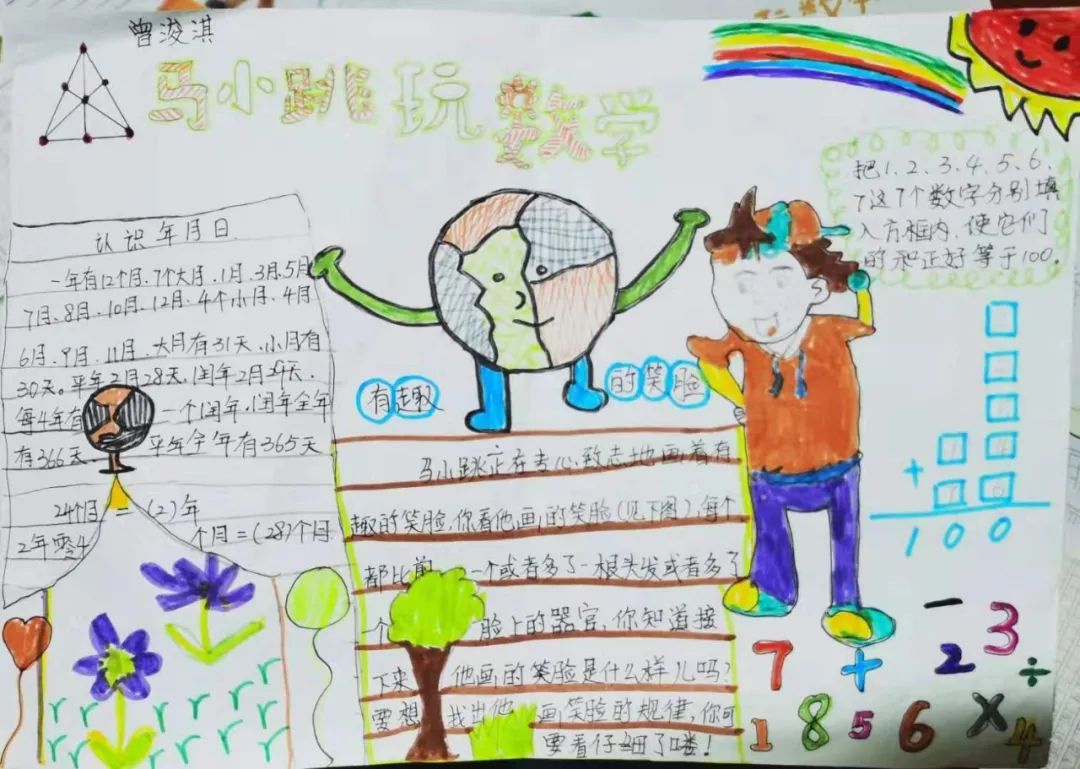 曾浚淇
马小跳玩数学
认识年月日
一年有12个月.7个大月.1月.3月.5月
7月.8月.10月.12月.4个小月.4月
6月.9月.11月.大月有31天.小月有
30天。平年2月28天.闰年2月29天.
每4年有 一个闰年.闰年全年
有366天 平年全年有365天
24个月=(2)年
2年零4 个月=(28)个月
有趣的笑脸
马小跳正在专心致志地画着有
趣的笑脸,你看他画的笑脸(见下图),每个
都比前 一个或者多了一根头发或者多了
一个 脸上的器官,你知道接
下来 他画的笑脸是什么样儿吗?
要想 找出他 画笑脸的规律,你可
要看仔细了喽!
把1、2、3、4、5、6、
7这7个数字分别填
入方框内,使它们
的和正好等于100。
+
100
7 + - 2 3 ÷
1 8 5 6 × 4